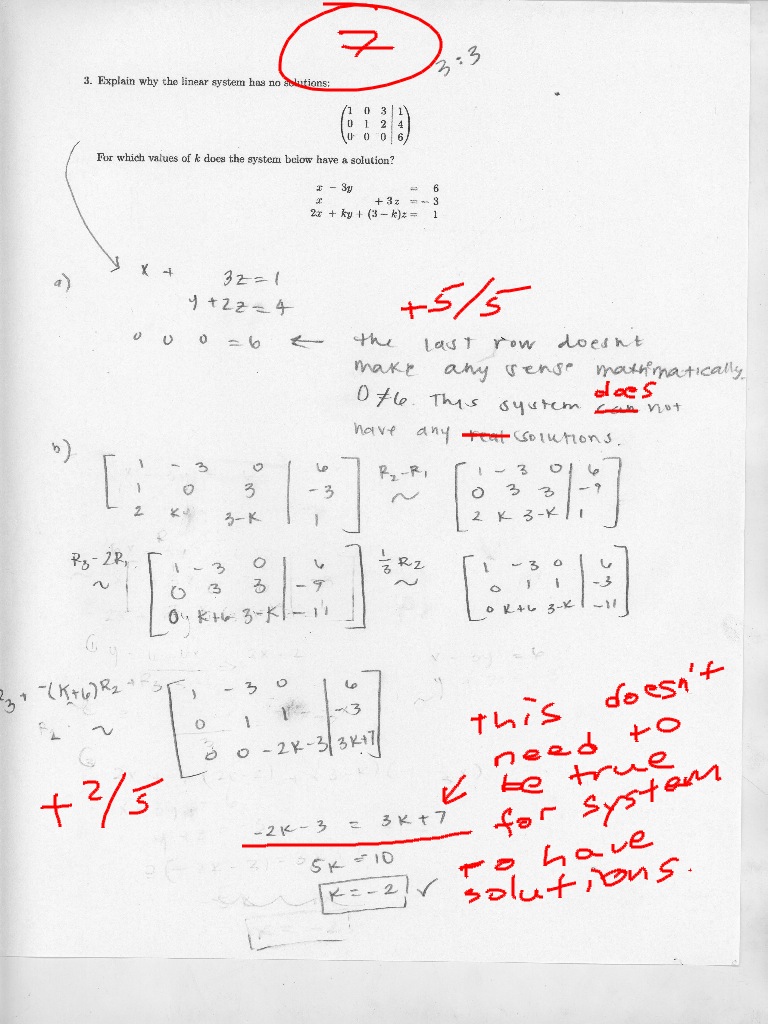 7
3:3
3. Explain why the linear system has no solutions:
1 0 3 | 1
0 1 2 | 4
0 0 0 | 6
For which values of k does the system below have a solution?
x - 3y = 6
x + 3z = -3
2x + ky + (3 - k)z = 1
a) x + 3z = 1
y + 2z = 4
+5/5
0 0 0 = 6 ← the last row doesnt
make any sense mathmatically
0 ≠ 6. This system can does not
have any real solutions.
b) 1 -3 0 | 6 R2-R1 1 -3 0 | 6
1 0 3 | -3 ~ 0 3 3 | -9
2 K 3-K | 1 2 K 3-K | 1
R3-2R1 1 -3 0 | 6 1/3 R2 1 -3 0 | 6
~ 0 3 3 | -9 ~ 0 1 1 | -3
0 K+6 3-K | -11 0 K+6 3-K | -11
R3 + -(K+6)R2 1 -3 0 | 6
~ 0 1 1 | -3
0 0 -2K-3 | 3K+7
+2/5
this doesn't
need to
be true
for system
to have
solutions.
-2K-3 = 3K+7
5K = 10
K = -2 ✓